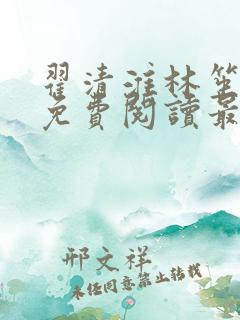 翟清淮林笙
免費閱讀最
邢文祥
未经同意禁止转载